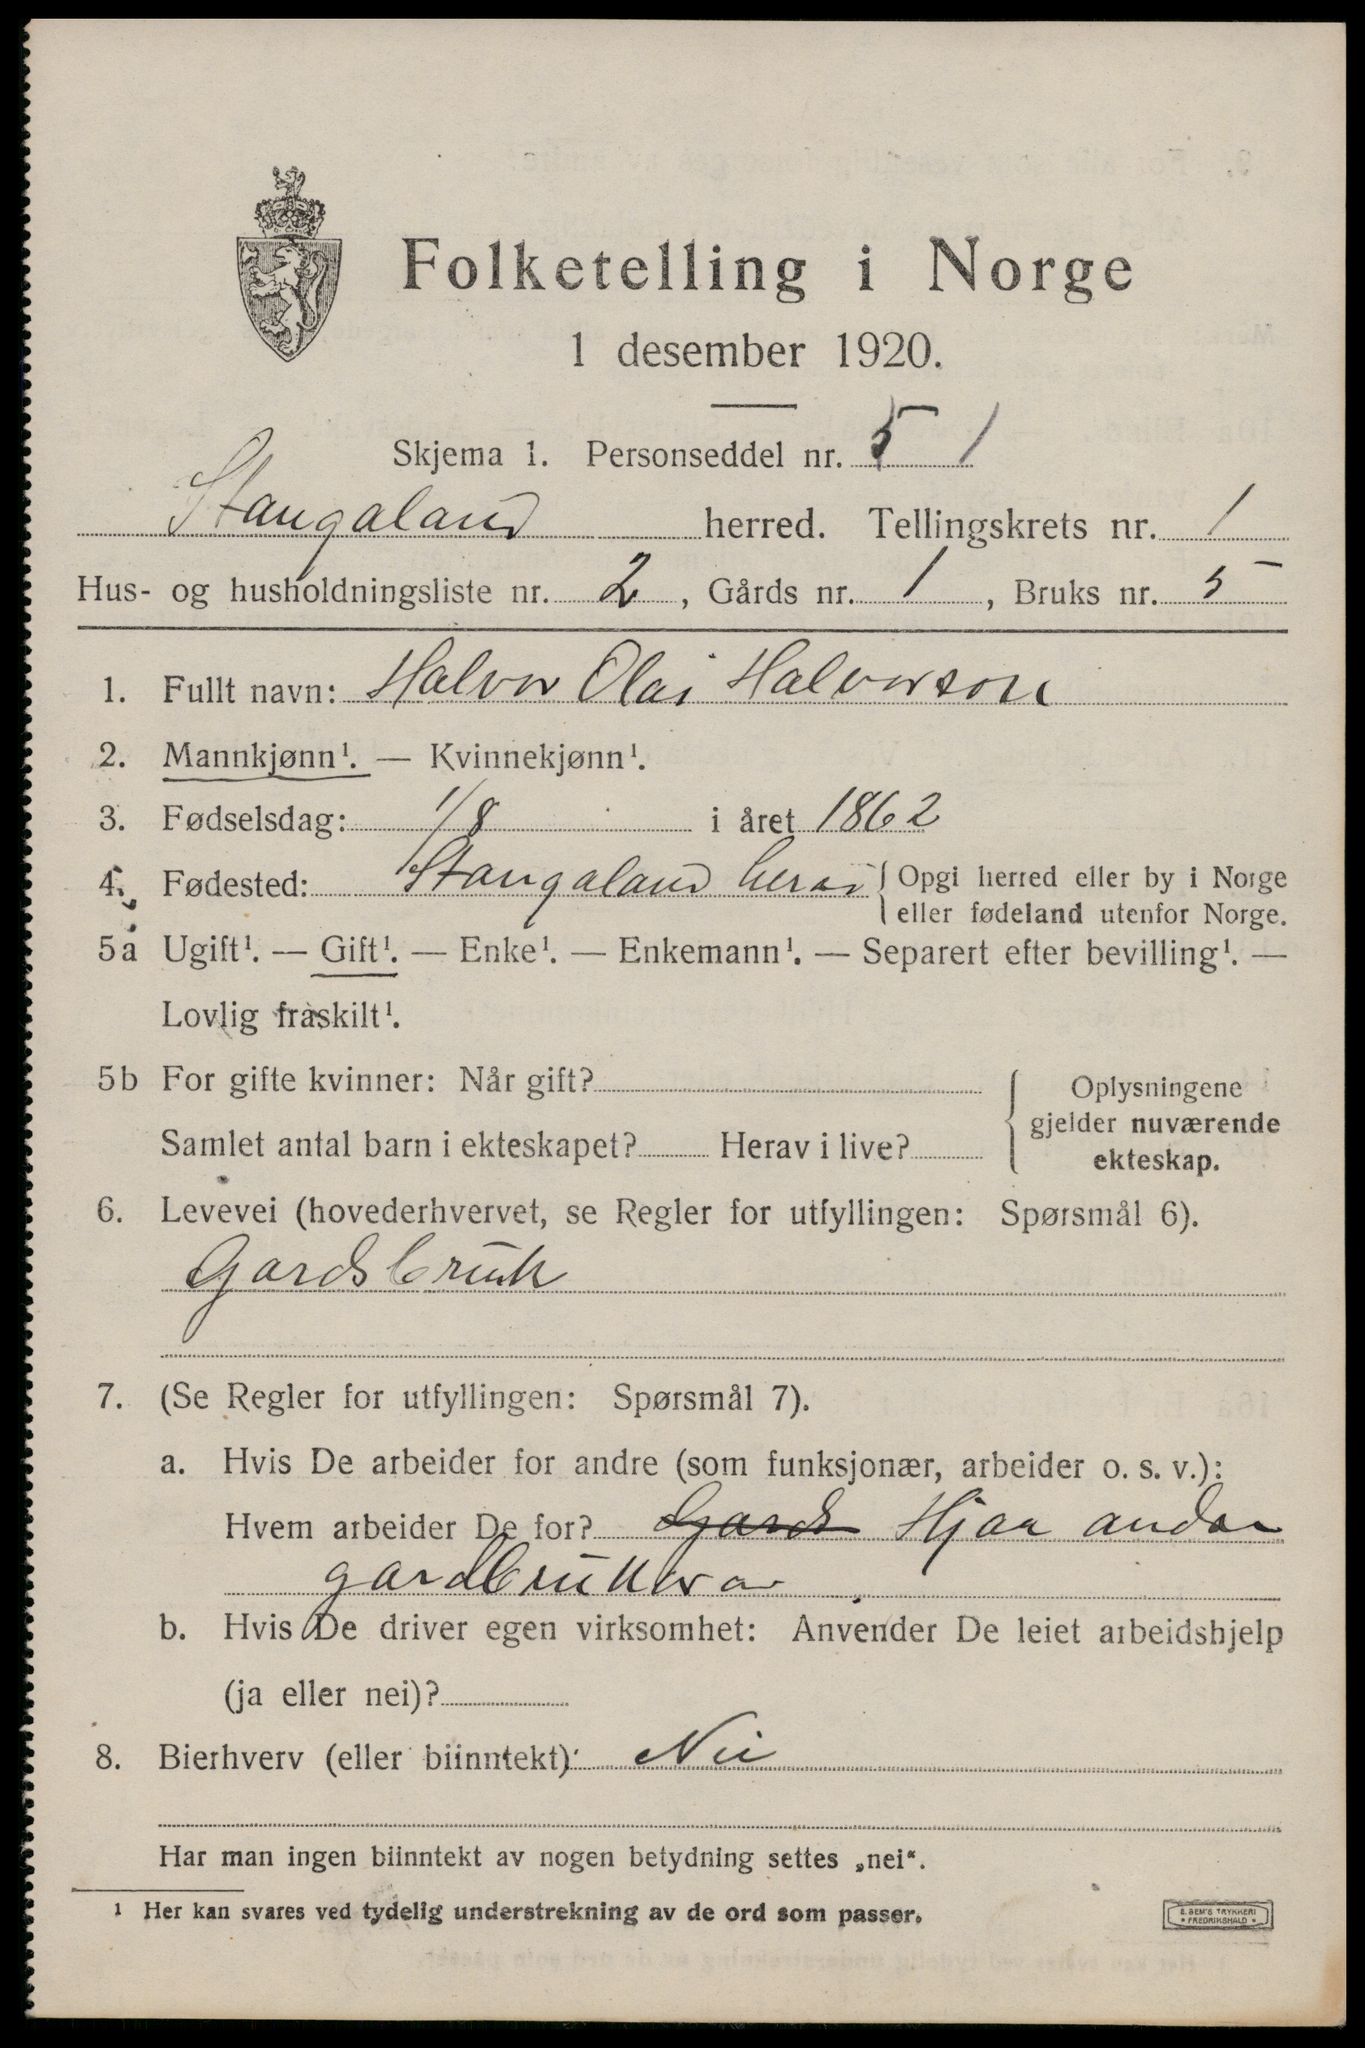 Folketelling i Norge
1 desember 1920.
Skjema 1. Personseddel nr. 5 1
Stangaland herred. Tellingskrets nr. 1
Hus- og husholdningsliste nr. 2, Gårds nr. 1, Bruks nr. 5
1. Fullt navn: Halvor Olai Halvorson
2. Mannkjønn¹. — Kvinnekjønn¹.
3. Fødselsdag: 1/8 i året 1862
4. Fødested: Stangaland herad { Opgi herred eller by i Norge
eller fødeland utenfor Norge.
5a Ugift¹. — Gift¹. — Enke¹. — Enkemann¹. — Separert efter bevilling¹. —
Lovlig fraskilt¹.
5b For gifte kvinner: Når gift?
Samlet antal barn i ekteskapet? Herav i live?
{ Oplysningene
gjelder nuværende
ekteskap.
6. Levevei (hovederhvervet, se Regler for utfyllingen: Spørsmål 6).
Gardsbruk
7. (Se Regler for utfyllingen: Spørsmål 7).
a. Hvis De arbeider for andre (som funksjonær, arbeider o. s. v.):
Hvem arbeider De for? Gards Hjaa andar
gardbrukerar
b. Hvis De driver egen virksomhet: Anvender De leiet arbeidshjelp
(ja eller nei)?
8. Bierhverv (eller biinntekt): Nei
Har man ingen biinntekt av nogen betydning settes „nei“.
¹ Her kan svares ved tydelig understrekning av de ord som passer.
E. SEM'S TRYKKERI
* FREDRIKSHALD *